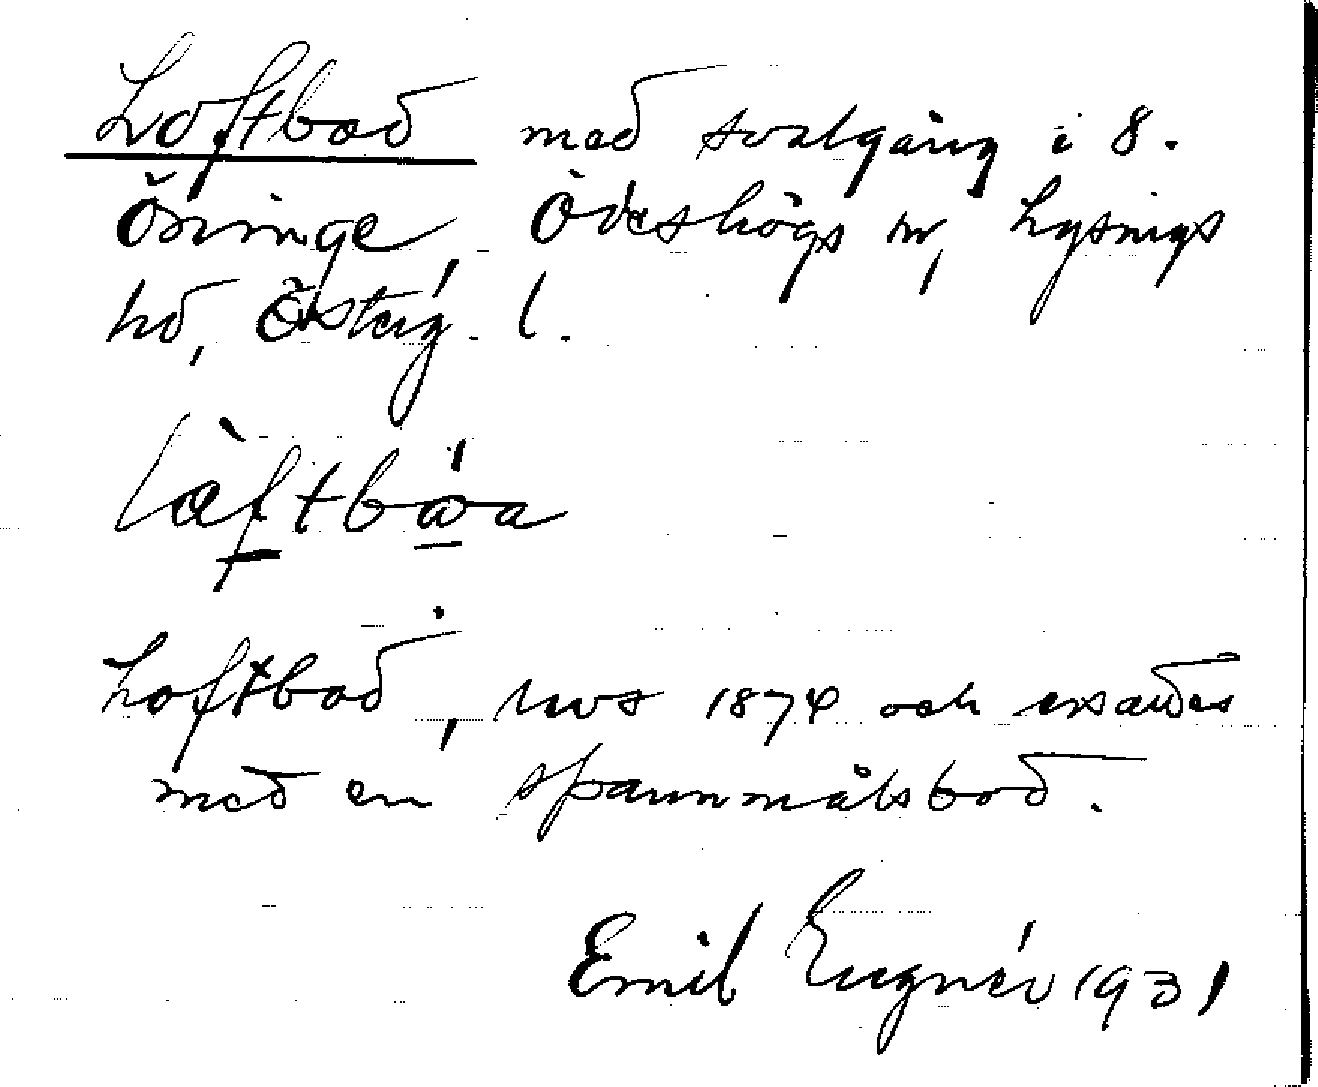 Loftbod med svalgång i S.
Öninge, Ödeshögs sn, Lysings
hd, Österg. l.
làftbω̇a
Loftbod, revs 1874 och ersattes
med en spannmålsbod.
Emil Eugnér 1931